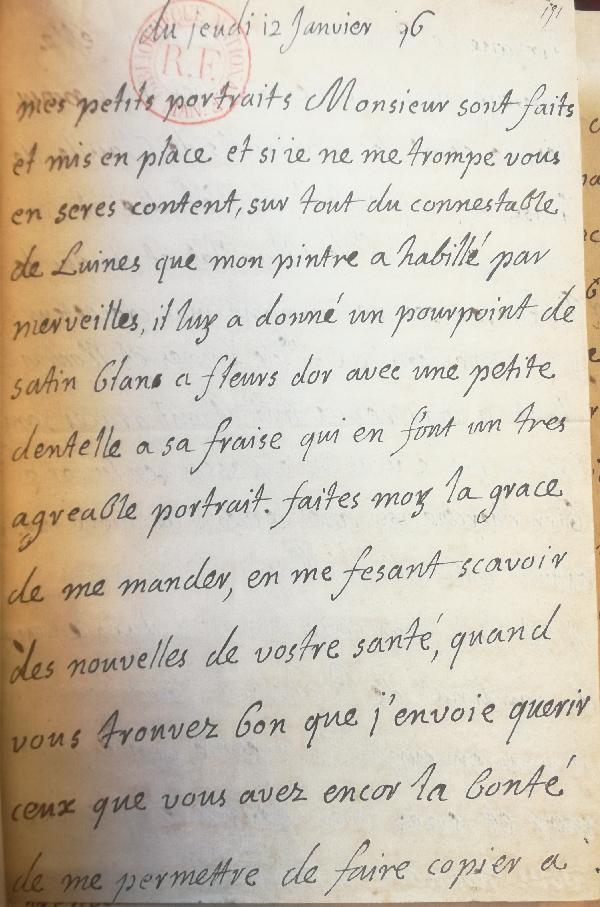 191
du jeudi 12 Janvier 96
R.F.
mes petits portraits Monsieur sont faits
et mis en place et si ie ne me trompe vous
en seres content, sur tout du connestable
de Luines que mon pintre a habillé par
merveilles, il luy a donné un pourpoint de
satin blanc a fleurs dor avec une petite
dentelle a sa fraise qui en font un tres
agreable portrait. faites moy la grace
de me mander, en me fesant scavoir
des nouvelles de vostre santé, quand
vous trouvez bon que j'envoie querir
ceux que vous avez encor la bonté
de me permettre de faire copier a